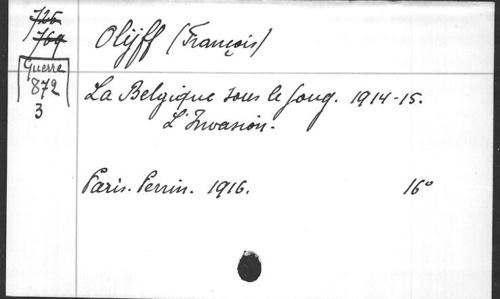 725
769
Guerre
872
3
Olÿff (François)
La Belgique sous le Joug. 1914-15.
L'Invasion.
Paris. Perrin. 1916. 16°